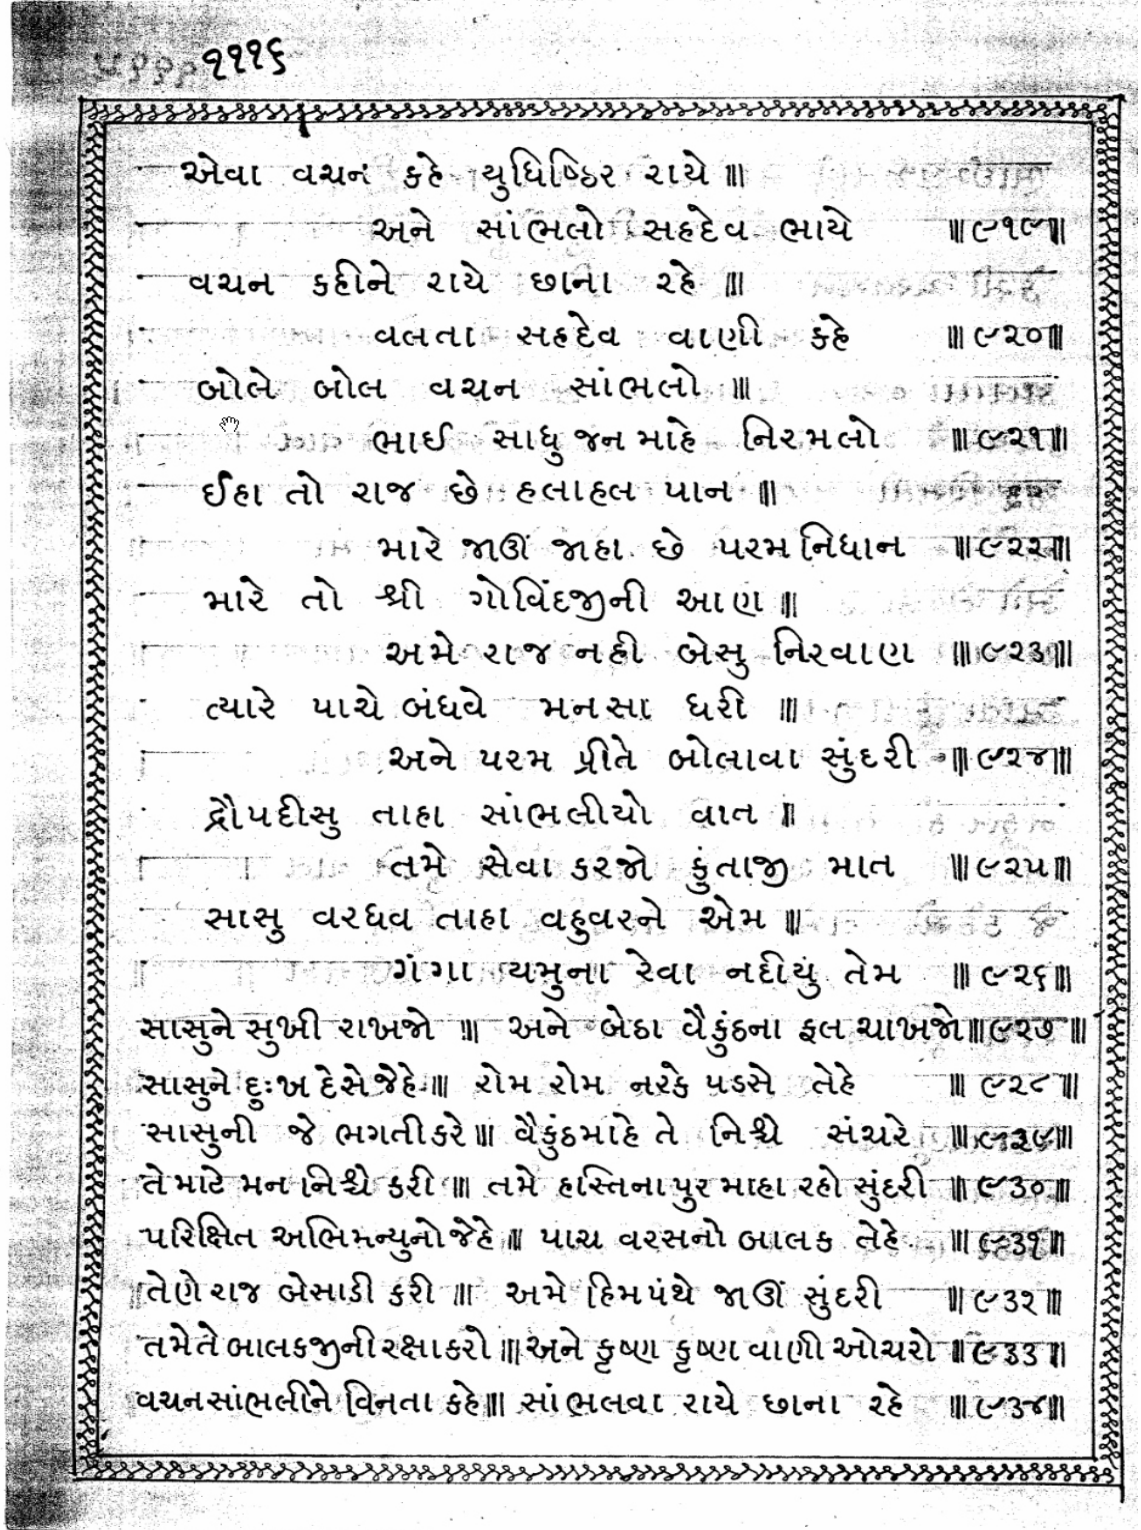 ૧૧૧૬
એવા વચન કહે યુધિષ્ઠિર રાયે ॥
અને સાંભલો સહદેવ ભાયે ॥૯૧૯॥
વચન કહીને રાયે છાના રહે ॥
વલતા સહદેવ વાણી કહે ॥૯૨૦॥
બોલે બોલ વચન સાંભલો ॥
ભાઈ સાધુ જન માહે નિરમલો ॥૯૨૧॥
ઈહા તો રાજ છે હલાહલ પાન ॥
મારે જાઊં જાહા છે પરમ નિધાન ॥૯૨૨॥
મારે તો શ્રી ગોવિંદજીની આણ ॥
અમે રાજ નહી બેસુ નિરવાણ ॥૯૨૩॥
ત્યારે પાચે બંધવે મનસા ધરી ॥
અને પરમ પ્રીતે બોલાવા સુંદરી ॥૯૨૪॥
દ્રૌપદીસુ તાહા સાંભલીયો વાત ॥
તમે સેવા કરજો કુંતાજી માત ॥૯૨૫॥
સાસુ વરધવ તાહા વહુવરને એમ ॥
ગંગા યમુના રેવા નદીયું તેમ ॥૯૨૬॥
સાસુને સુખી રાખજો ॥ અને બેઠા વૈકુંઠના ફલ ચાખજો ॥૯૨૭॥
સાસુને દુઃખ દેસે જેહે ॥ રોમ રોમ નરકે પડસે તેહે ॥૯૨૮॥
સાસુની જે ભગતી કરે ॥ વૈકુંઠમાહે તે નિશ્ચે સંચરે ॥૯૨૯॥
તે માટે મન નિશ્ચે કરી ॥ તમે હસ્તિનાપુર માહા રહો સુંદરી ॥૯૩૦॥
પરિક્ષિત અભિમન્યુનો જેહે ॥ પાચ વરસનો બાલક તેહે ॥૯૩૧॥
તેણે રાજ બેસાડી કરી ॥ અમે હિમપંથે જાઊં સુંદરી ॥૯૩૨॥
તમે તે બાલકજીની રક્ષા કરો ॥ અને કૃષ્ણ કૃષ્ણ વાણી ઓચરો ॥૯૩૩॥
વચન સાંભલીને વિનતા કહે ॥ સાંભલવા રાયે છાના રહે ॥૯૩૪॥